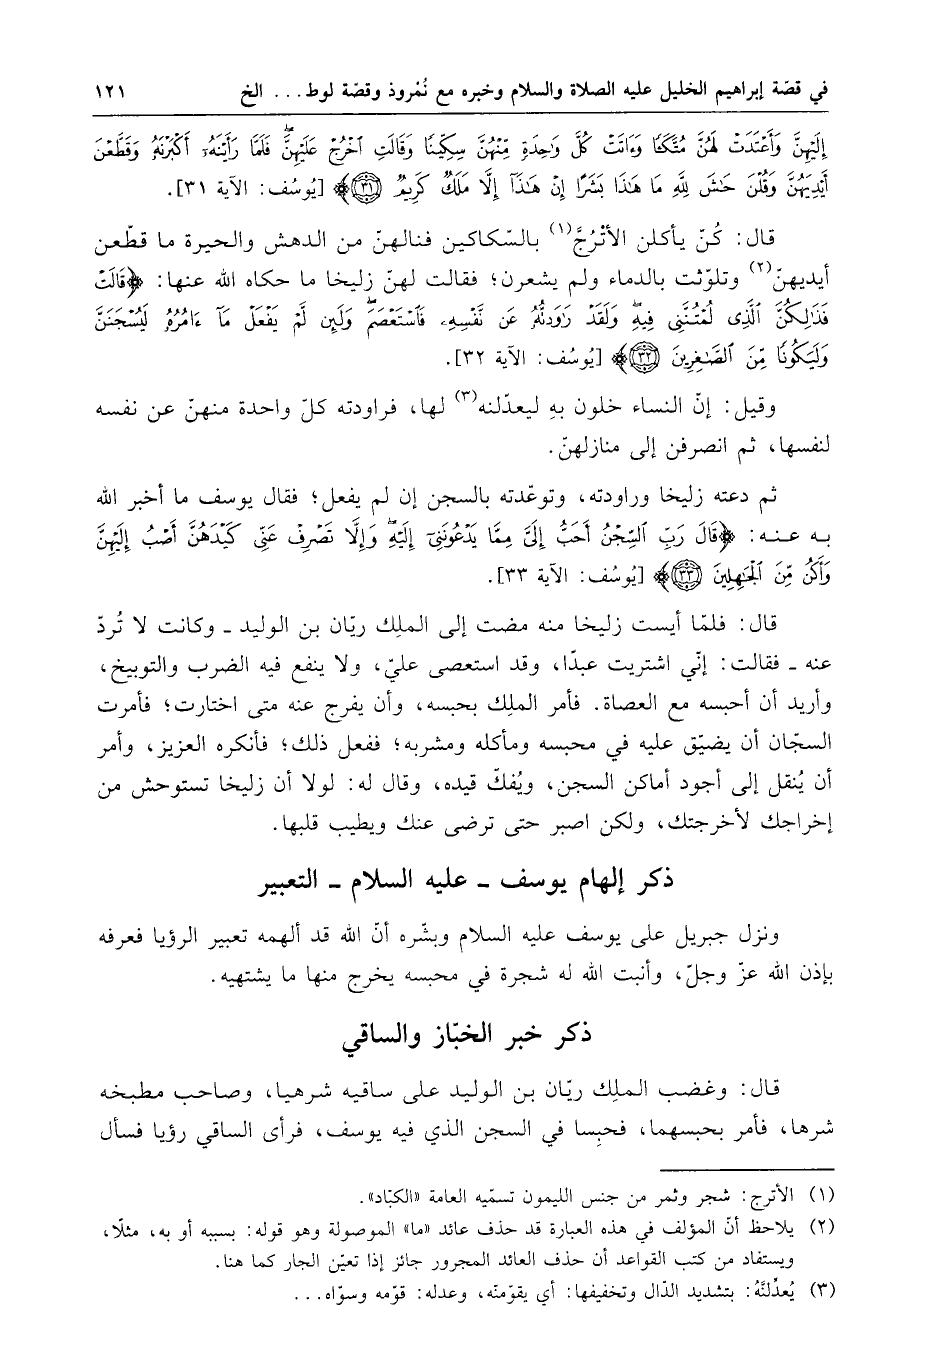 في قصّة إبراهيم الخليل عليه الصلاة والسلام وخبره مع نُمْروذ وقصّة لوط... الخ ١٢١
إِلَيْهِنَّ وَأَعْتَدَتْ لَهُنَّ مُتَّكَـًٔا وَءَاتَتْ كُلَّ وَٰحِدَةٍ مِّنْهُنَّ سِكِّينًا وَقَالَتِ ٱخْرُجْ عَلَيْهِنَّ ۖ فَلَمَّا رَأَيْنَهُۥٓ أَكْبَرْنَهُۥ وَقَطَّعْنَ
أَيْدِيَهُنَّ وَقُلْنَ حَـٰشَ لِلَّهِ مَا هَـٰذَا بَشَرًا إِنْ هَـٰذَآ إِلَّا مَلَكٌ كَرِيمٌ ﴿٣١﴾﴾ [يُوسُف: الآية ٣١].
قال: كُنّ يأكلن الأتْرُجَّ(١) بالسّكاكين فنالهنّ من الدهش والحيرة ما قطّعن
أيديهنّ(٢) وتلوّثت بالدماء ولم يشعرن؛ فقالت لهنّ زليخا ما حكاه الله عنها: ﴿قَالَتْ
فَذَٰلِكُنَّ ٱلَّذِى لُمْتُنَّنِى فِيهِ ۖ وَلَقَدْ رَٰوَدتُّهُۥ عَن نَّفْسِهِۦ فَٱسْتَعْصَمَ ۖ وَلَئِن لَّمْ يَفْعَلْ مَآ ءَامُرُهُۥ لَيُسْجَنَنَّ
وَلَيَكُونًا مِّنَ ٱلصَّـٰغِرِينَ ﴿٣٢﴾﴾ [يُوسُف: الآية ٣٢].
وقيل: إنّ النساء خلون بهِ ليعدّلنه(٣) لها، فراودته كلّ واحدة منهنّ عن نفسه
لنفسها، ثم انصرفن إلى منازلهنّ.
ثم دعته زليخا وراودته، وتوعّدته بالسجن إن لم يفعل؛ فقال يوسف ما أخبر الله
به عنه: ﴿قَالَ رَبِّ ٱلسِّجْنُ أَحَبُّ إِلَىَّ مِمَّا يَدْعُونَنِىٓ إِلَيْهِ ۖ وَإِلَّا تَصْرِفْ عَنِّى كَيْدَهُنَّ أَصْبُ إِلَيْهِنَّ
وَأَكُن مِّنَ ٱلْجَـٰهِلِينَ ﴿٣٣﴾﴾ [يُوسُف: الآية ٣٣].
قال: فلمّا أيست زليخا منه مضت إلى الملِك ريّان بن الوليد ـ وكانت لا تُردّ
عنه ـ فقالت: إنّي اشتريت عبدًا، وقد استعصى عليّ، ولا ينفع فيه الضرب والتوبيخ،
وأريد أن أحبسه مع العصاة. فأمر الملِك بحبسه، وأن يفرج عنه متى اختارت؛ فأمرت
السجّان أن يضيّق عليه في محبسه ومأكله ومشربه؛ ففعل ذلك؛ فأنكره العزيز، وأمر
أن يُنقل إلى أجود أماكن السجن، ويُفكّ قيده، وقال له: لولا أن زليخا تستوحش من
إخراجك لأخرجتك، ولكن اصبر حتى ترضى عنك ويطيب قلبها.
ذكر إلهام يوسف ـ عليه السلام ـ التعبير
ونزل جبريل على يوسف عليه السلام وبشّره أنّ الله قد ألهمه تعبير الرؤيا فعرفه
بإذن الله عزّ وجلّ، وأنبت الله له شجرة في محبسه يخرج منها ما يشتهيه.
ذكر خبر الخبّاز والساقي
قال: وغضب الملِك ريّان بن الوليد على ساقيه شرهيا، وصاحب مطبخه
شرها، فأمر بحبسهما، فحبِسا في السجن الذي فيه يوسف، فرأى الساقي رؤيا فسأل
(١) الأترج: شجر وثمر من جنس الليمون تسمّيه العامة «الكبّاد».
(٢) يلاحظ أنّ المؤلف في هذه العبارة قد حذف عائد «ما» الموصولة وهو قوله: بسببه أو به، مثلًا،
ويستفاد من كتب القواعد أن حذف العائد المجرور جائز إذا تعيّن الجار كما هنا.
(٣) يُعدِّلنَّهُ: بتشديد الدّال وتخفيفها: أي يقوّمنّه، وعدله: قوّمه وسوّاه...